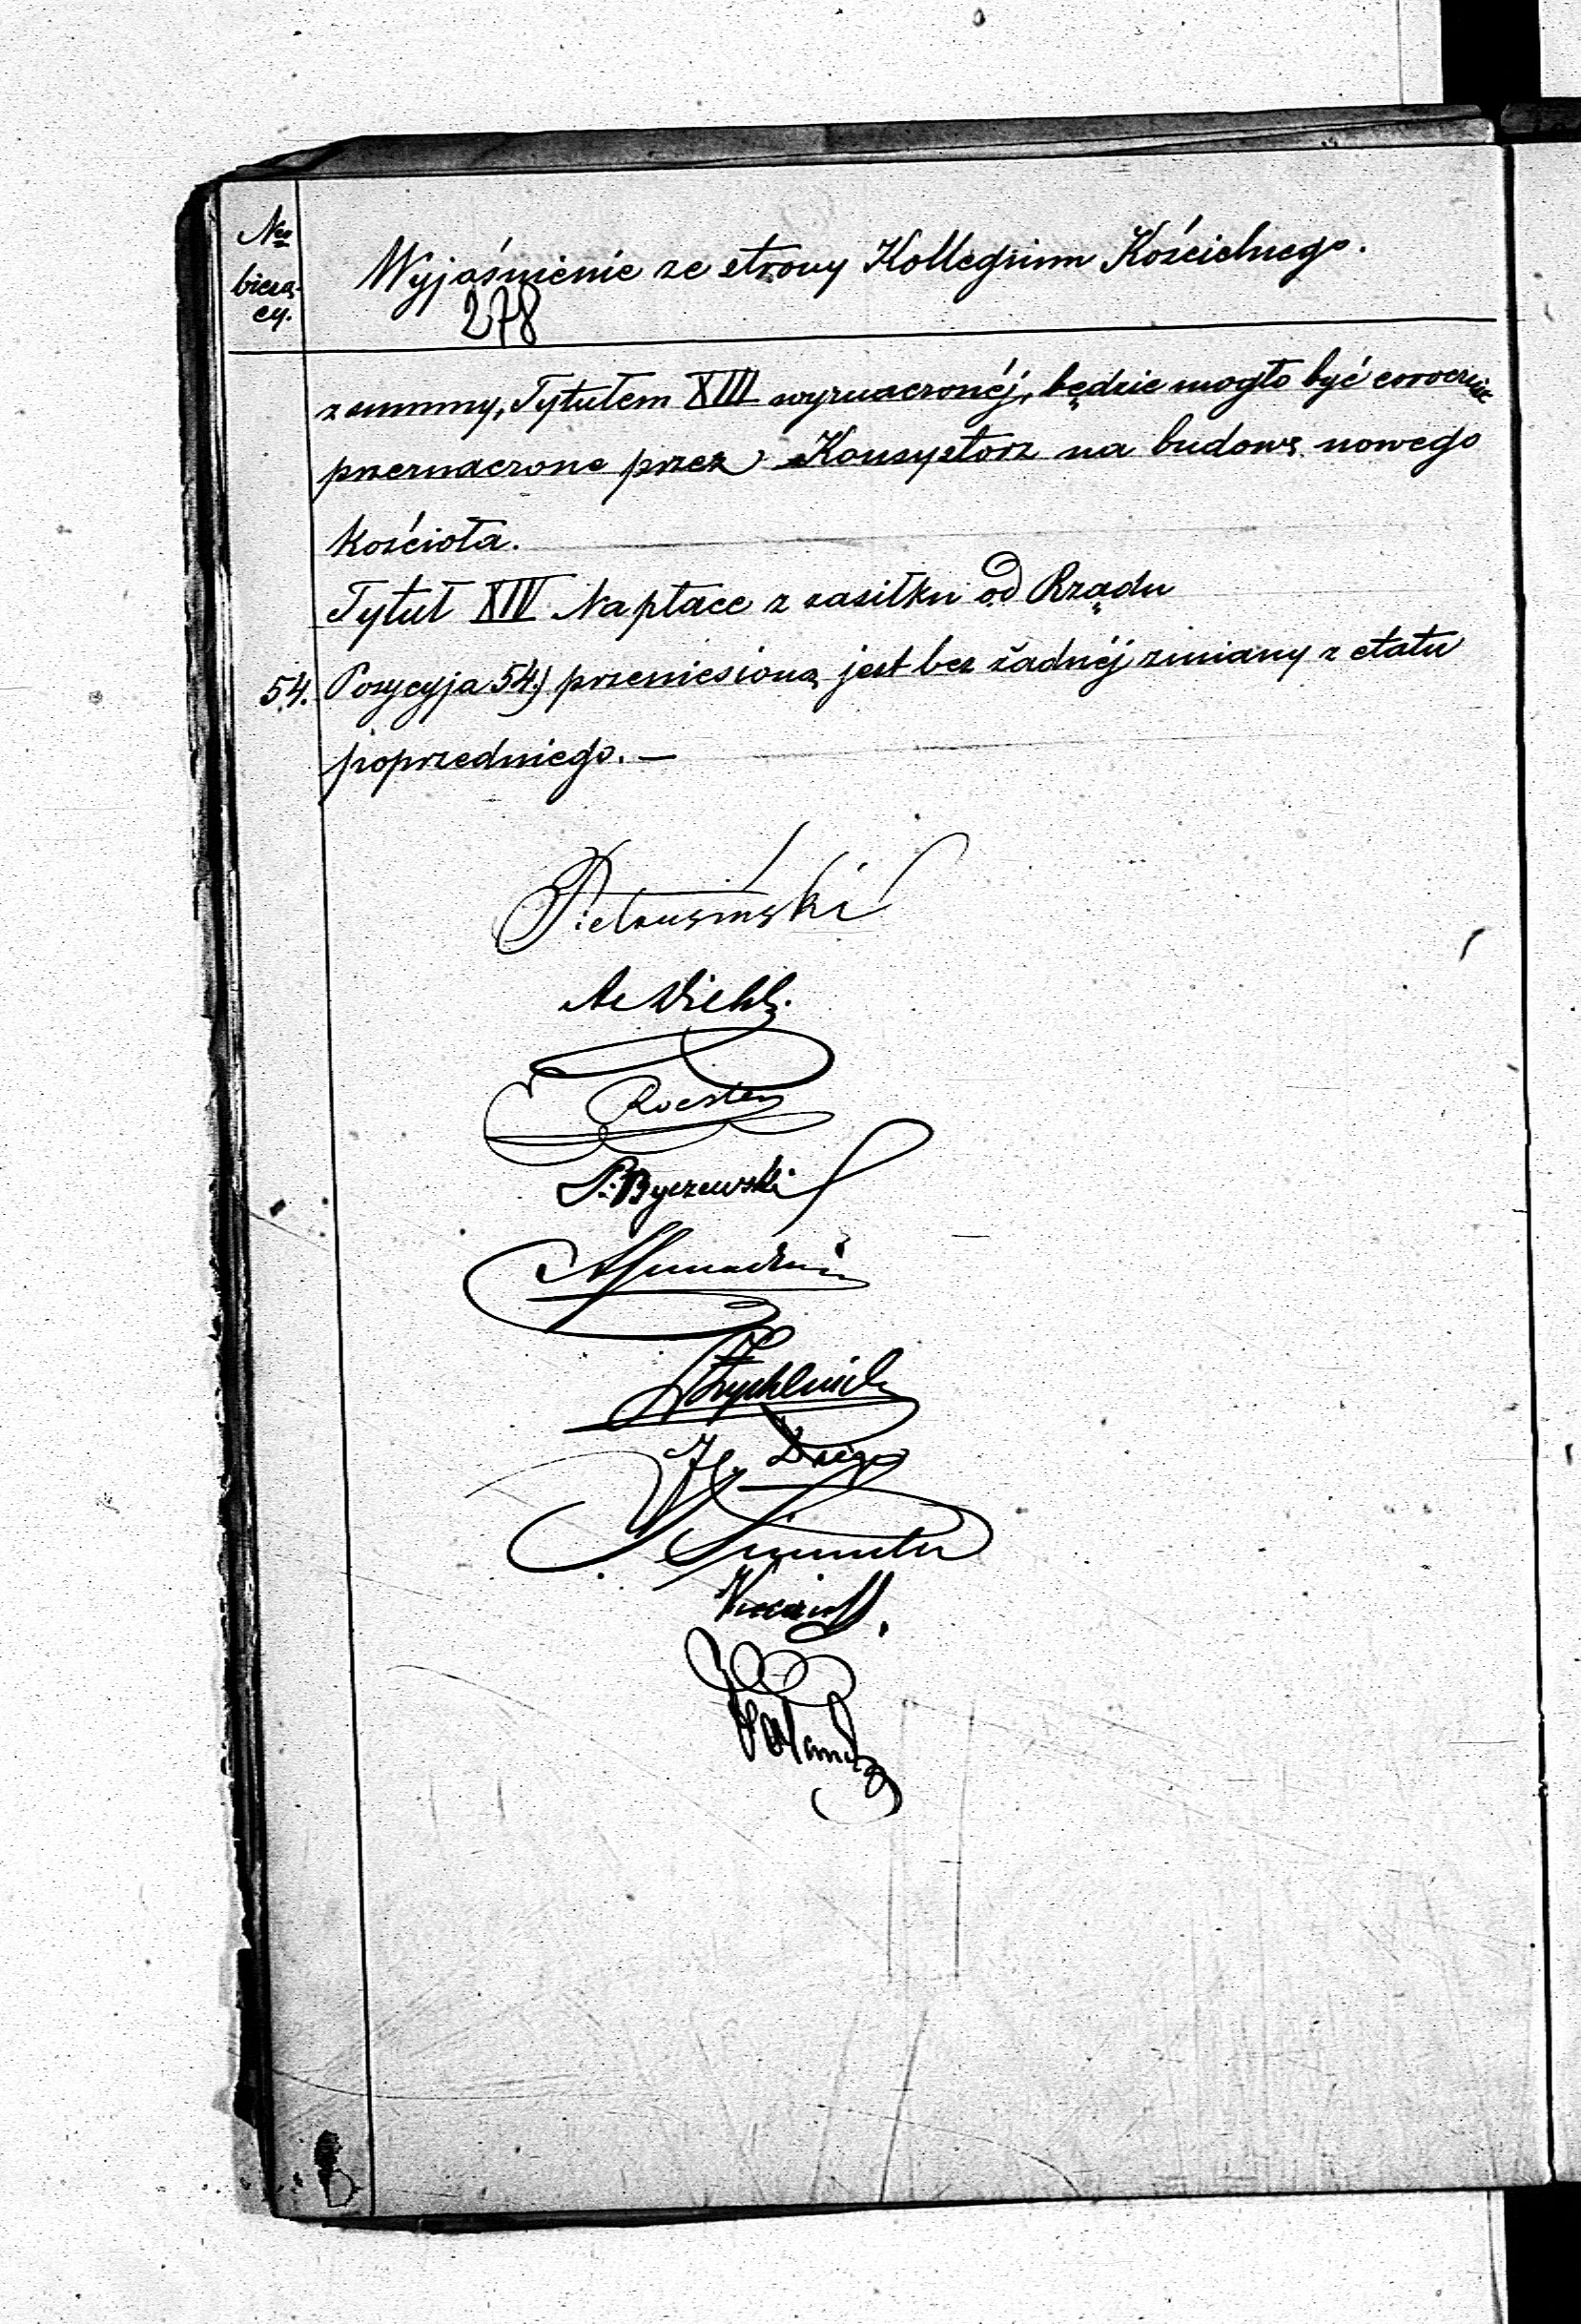 Nro bieżą-
cy.
Wyjaśnienie ze strony Kollegium Kościelnego.
278
z summy, Tytułem XIII wyznaczonéj, będzie mogło być corocznie
przeznaczone przez Konsystorz na budowę nowego
kościoła.
Tytuł XIV Na płace z zasiłku od Rządu
54. Pozycyja 54.) przeniesioną jest bez żadnéj zmiany z etatu
poprzedniego. —
Pietrusiński
A Diehl.
Roesler
P. Byczewski